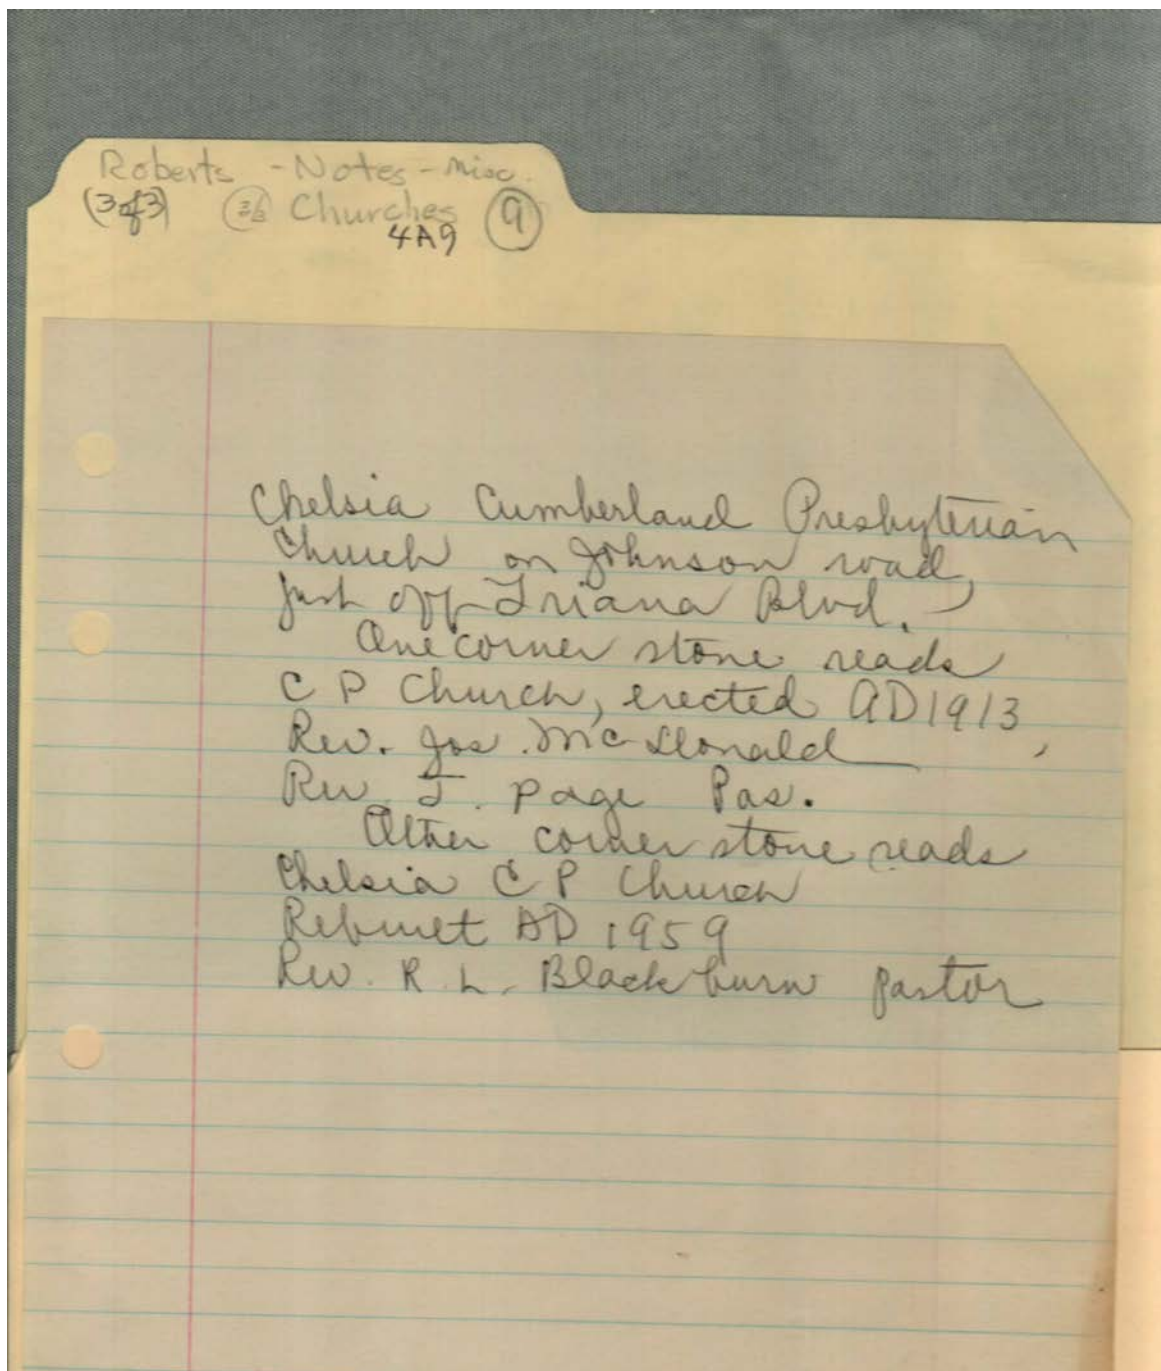 Roberts - Notes - Misc.
(3 of 3) Churches 9
4A9
Chelsia Cumberland Presbyterian
Church on Johnson road,
just off Triana Blvd.
One corner stone reads
C P Church, erected AD 1913,
Rev. Jos. McDonald
Rev. J. Page Pas.
Other corner stone reads
Chelsia C P Church
Rebuiet AD 1959
Rev. R. L. Blackburn pastor